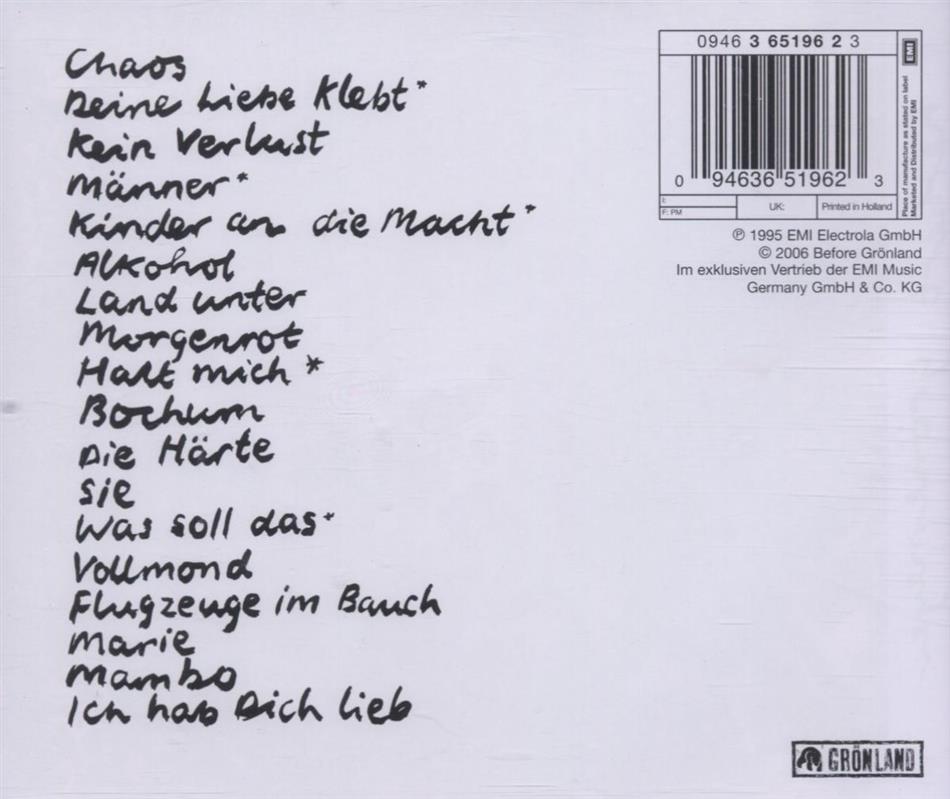 Chaos
Deine Liebe Klebt*
Kein Verlust
Männer*
Kinder an die Macht*
Alkohol
Land unter
Morgenrot
Halt mich*
Bochum
Die Härte
Sie
Was soll das*
Vollmond
Flugzeuge im Bauch
Marie
Mambo
Ich hab Dich lieb
0946 3 65196 2 3
0 94636 51962 3
I:
F: PM
UK:
Printed in Holland
EMI
Place of manufacture as stated on label
Marketed and Distributed by EMI
℗ 1995 EMI Electrola GmbH
© 2006 Before Grönland
Im exklusiven Vertrieb der EMI Music
Germany GmbH & Co. KG
GRÖNLAND